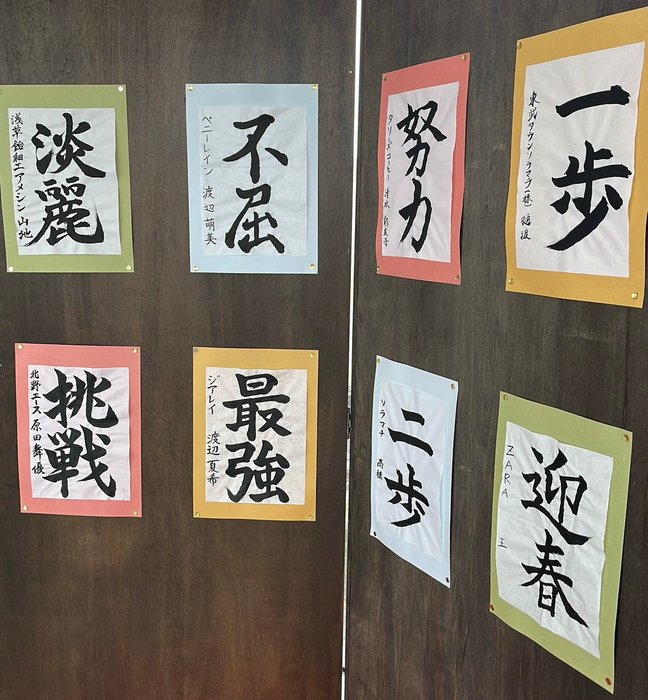 淡麗
浅草飴細工アメシン 山地
不屈
ペニーレイン 渡辺 萌美
努力
タリーズコーヒー 清水
一歩
東武タウンソラマチ(株)
挑戦
北野エース 原田舞優
最強
ジアレイ 渡辺 夏希
二歩
ソラマチ 高橋
迎春
ZARA 王